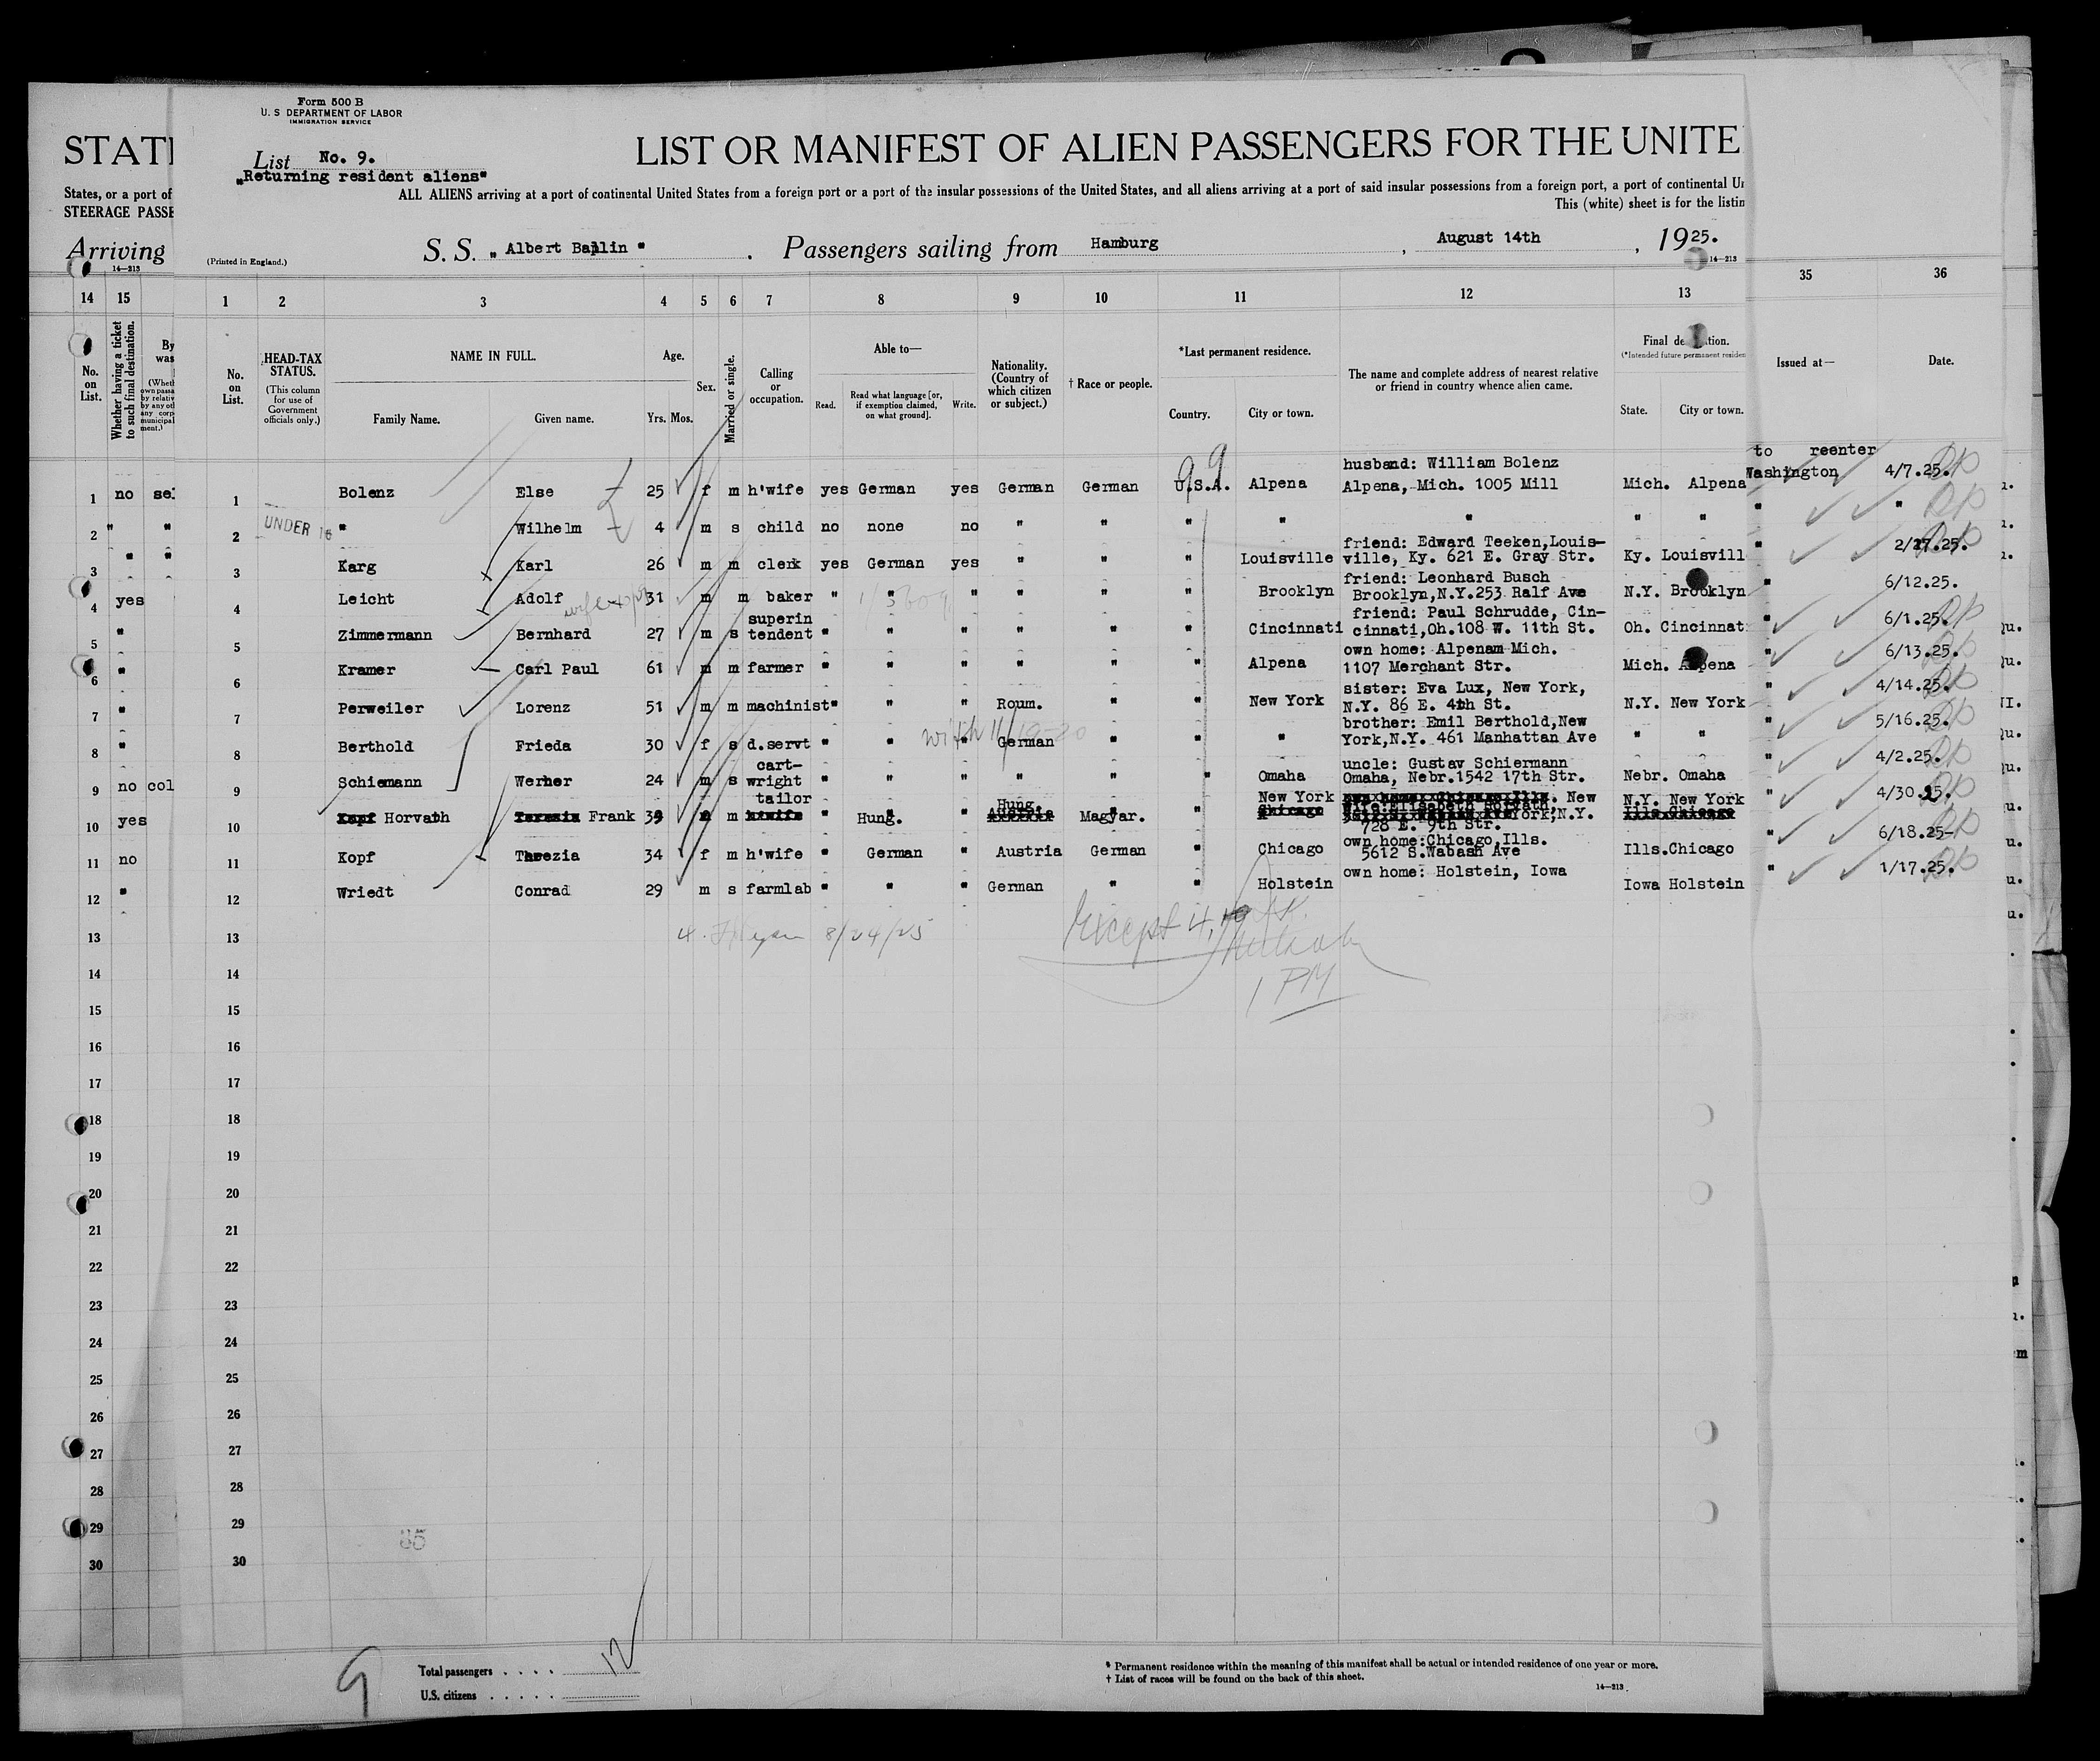 Form 500 B
U. S DEPARTMENT OF LABOR
IMMIGRATION SERVICE
STATE
LIST OR MANIFEST OF ALIEN PASSENGERS FOR THE UNITE
List No. 9.
"Returning resident aliens"
States, or a port of
STEERAGE PASSE
ALL ALIENS arriving at a port of continental United States from a foreign port or a port of the insular possessions of the United States, and all aliens arriving at a port of said insular possessions from a foreign port, a port of continental Un
This (white) sheet is for the listin
Arriving
14—213
(Printed in England.)
S. S. "Albert Ballin". Passengers sailing from Hamburg, August 14th, 1925.
14—213
14 15 1 2 3 4 5 6 7 8 9 10 11 12 13 35 36
No. on List.
Whether having a ticket to such final destination.
By
was
No. on List.
HEAD-TAX STATUS.
(This column for use of Government officials only.)
NAME IN FULL.
Family Name. Given name.
Age.
Yrs. Mos.
Sex.
Married or single.
Calling or occupation.
Able to—
Read. Read what language [or, if exemption claimed, on what ground]. Write.
Nationality. (Country of which citizen or subject.)
† Race or people.
*Last permanent residence.
Country. City or town.
The name and complete address of nearest relative or friend in country whence alien came.
Final de tion.
(*Intended future permanent residen
State. City or town.
Issued at—
Date.
to reenter
husband: William Bolenz
1 no sel 1 Bolenz Else 25 f m h'wife yes German yes German German U.S.A. Alpena Alpena, Mich. 1005 Mill Mich. Alpena Washington 4/7.25.
2 " " 2 UNDER 16 " Wilhelm 4 m s child no none no " " " " " " " " "
friend: Edward Teeken,Louis-
3 " " 3 Karg Karl 26 m m clerk yes German yes " " " Louisville ville, Ky. 621 E. Gray Str. Ky. Louisvill " 2/27.25.
friend: Leonhard Busch
4 yes 4 Leicht Adolf 31 m m baker " " " " " " Brooklyn Brooklyn,N.Y.253 Ralf Ave N.Y. Brooklyn " 6/12.25.
superin friend: Paul Schrudde, Cin-
5 " 5 Zimmermann Bernhard 27 m s tendent " " " " " " Cincinnati cinnati,Oh.108 W. 11th St. Oh. Cincinnat " 6/1.25.
own home: Alpenam Mich.
6 " 6 Kramer Carl Paul 61 m m farmer " " " " " " Alpena 1107 Merchant Str. Mich. Alpena " 6/13.25.
sister: Eva Lux, New York,
7 " 7 Perweiler Lorenz 51 m m machinist " " " Roum. " " New York N.Y. 86 E. 4th St. N.Y. New York " 4/14.25.
brother: Emil Berthold,New
8 " 8 Berthold Frieda 30 f s d.servt " " " German " " " York,N.Y. 461 Manhattan Ave " " " 5/16.25.
cart- uncle: Gustav Schiermann
9 no col 9 Schiemann Werner 24 m s wright " " " " " " Omaha Omaha, Nebr.1542 17th Str. Nebr. Omaha " 4/2.25.
tailor Hung. New York New N.Y. New York
10 yes 10 Kopf Horvath Terezia Frank 39 m m h'wife " Hung. " Austria Magyar. " Chicago wife:Elisabeth Horvath, York,N.Y. Ills.Chicago " 4/30.25.
728 E. 9th Str.
own home:Chicago,Ills.
11 no 11 Kopf Therezia 34 f m h'wife " German " Austria German " Chicago 5612 S.Wabash Ave Ills.Chicago " 6/18.25-
own home: Holstein, Iowa
12 " 12 Wriedt Conrad 29 m s farmlab " " " German " " Holstein Iowa Holstein " 1/17.25.
13 13 4. 8/24/25 Except 4, 10
14 14 1 PM
15 15
16 16
17 17
18 18
19 19
20 20
21 21
22 22
23 23
24 24
25 25
26 26
27 27
28 28
29 29
30 30
9
Total passengers . . . . 12
U.S. citizens . . . . .
* Permanent residence within the meaning of this manifest shall be actual or intended residence of one year or more.
† List of races will be found on the back of this sheet.
14—213